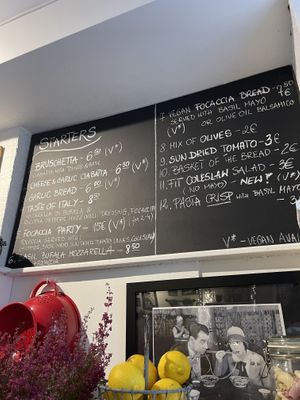 STARTERS
BRUSCHETTA - 6.50 (V*)
CIABATTA WITH TOMATO & BASIL
CHEESE & GARLIC CIABATTA - 6.50 (V*)
GARLIC BREAD - 6.50 (V*)
TASTE OF ITALY - 8.50
FOCACCIA PARTY - 15€ (V*)
FOCACCIA SERVED WITH
BASIL BUFALA MOZZARELLA - 8.50
7. VEGAN FOCACCIA BREAD - 7€
SERVED WITH BASIL MAYO
(V*) OR OLIVE OIL BALSAMICO
8. MIX OF OLIVES - 2€
9. SUN DRIED TOMATO - 3€
10. BASKET OF THE BREAD - 2€
11. FIT COLESLAW SALAD - 3€
(NO MAYO) - NEW! (V*)
12. PASTA CRISP WITH BASIL MAYO
3€ (V*)
V* - VEGAN AVAI